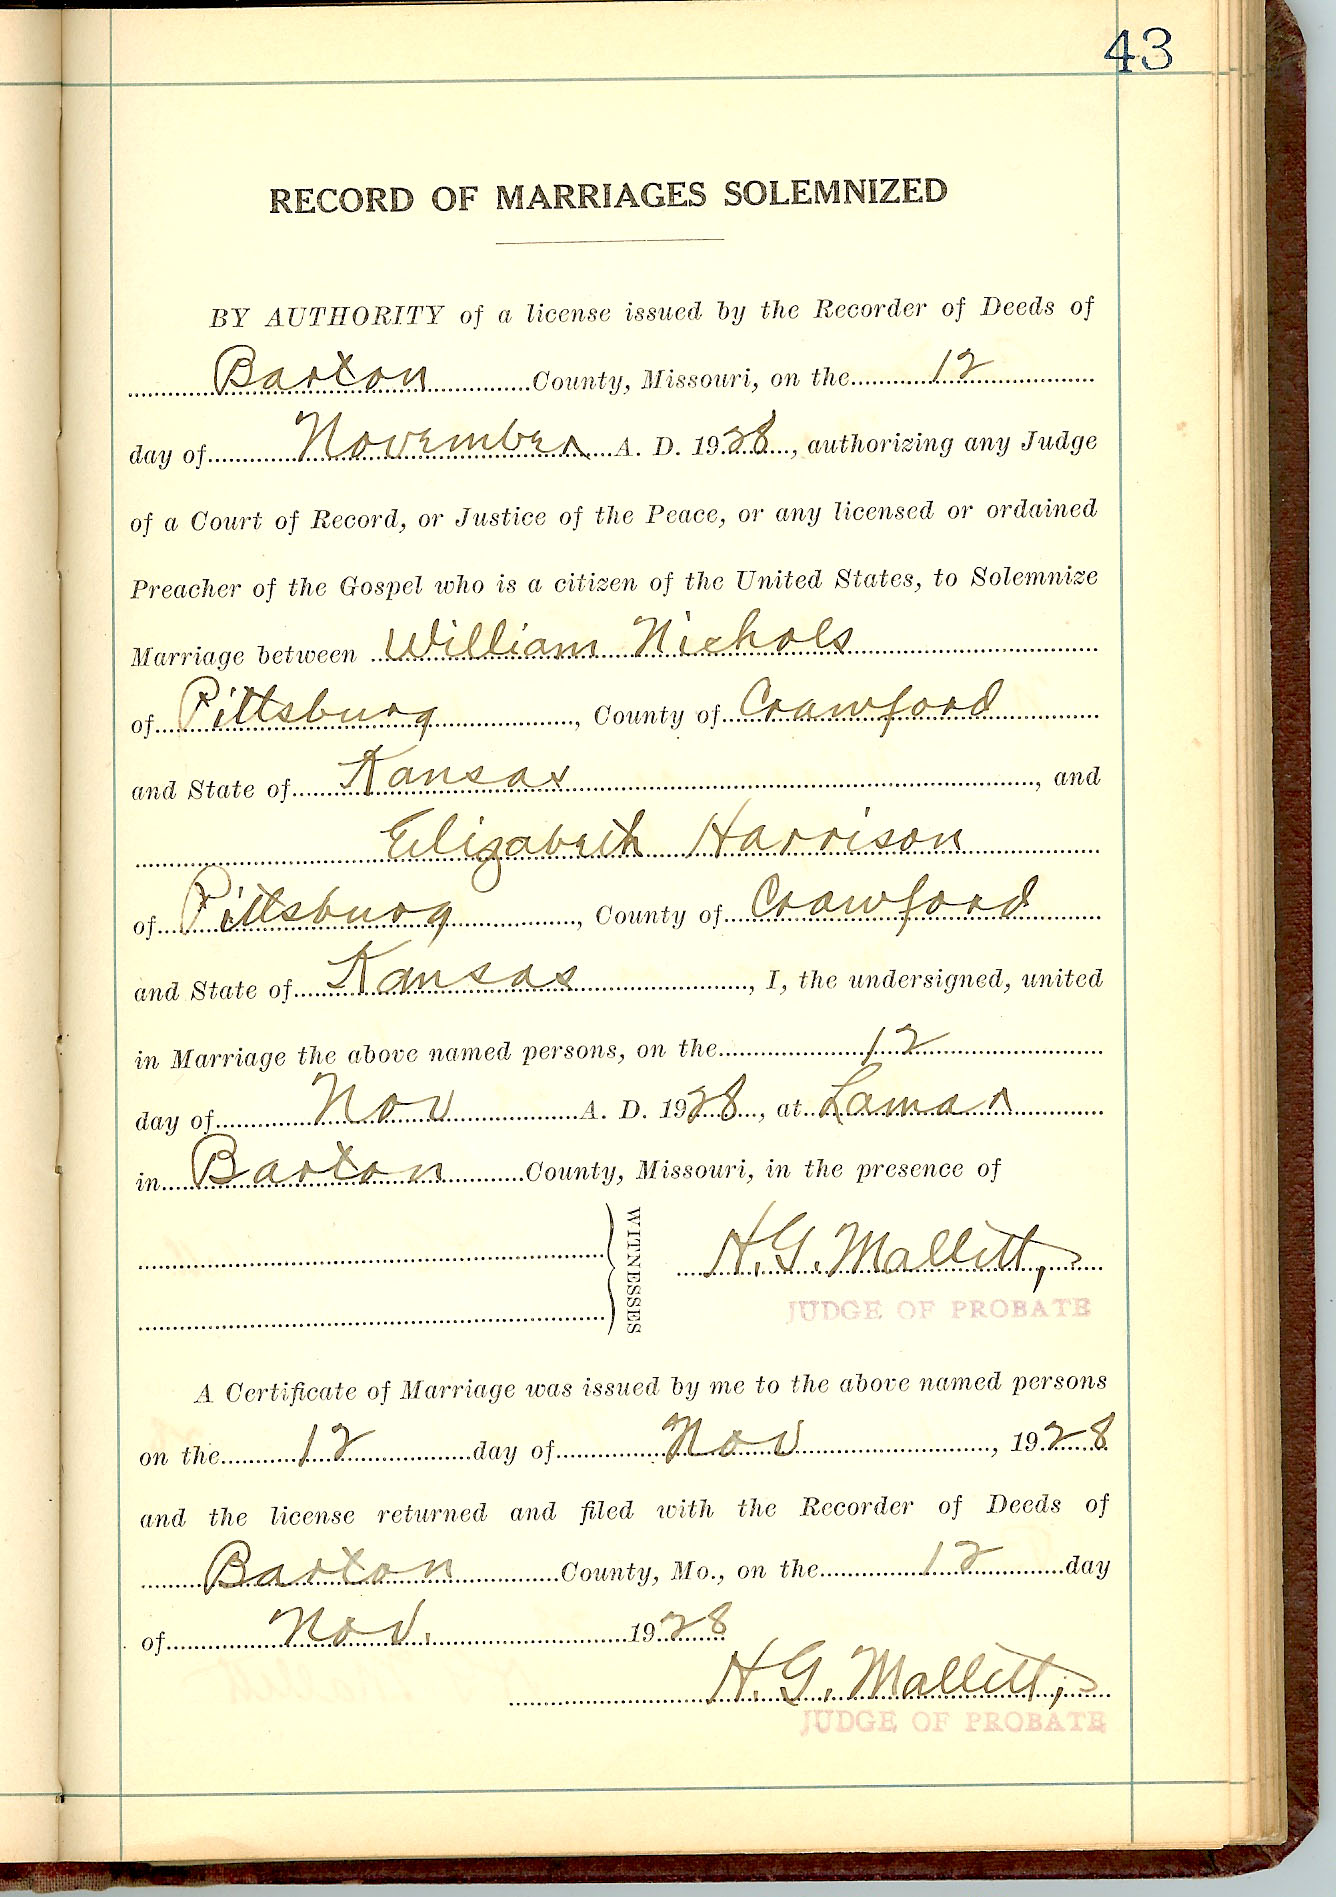 43
RECORD OF MARRIAGES SOLEMNIZED
BY AUTHORITY of a license issued by the Recorder of Deeds of
Barton County, Missouri, on the 12
day of November A. D. 1928, authorizing any Judge
of a Court of Record, or Justice of the Peace, or any licensed or ordained
Preacher of the Gospel who is a citizen of the United States, to Solemnize
Marriage between William Nichols
of Pittsburg, County of Crawford
and State of Kansas, and
Elizabeth Harrison
of Pittsburg, County of Crawford
and State of Kansas, I, the undersigned, united
in Marriage the above named persons, on the 12
day of Nov A. D. 1928, at Lamar
in Barton County, Missouri, in the presence of
WITNESSES
H. G. Mallitt,
JUDGE OF PROBATE
A Certificate of Marriage was issued by me to the above named persons
on the 12 day of Nov, 1928
and the license returned and filed with the Recorder of Deeds of
Barton County, Mo., on the 12 day
of Nov. 1928
H. G. Mallitt,
JUDGE OF PROBATE